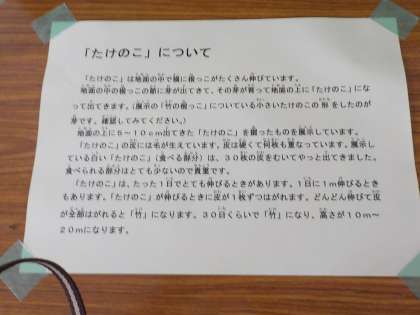 「たけのこ」について
「たけのこ」は地面の中で横に根っこがたくさん伸びています。
地面の中の根っこの節に芽が出てきて、その芽が育って地面の上に「たけのこ」にな
って出てきます。(展示の「竹の根っこ」についている小さいたけのこの形をしたのが
芽です。確認してみてください。)
地面の上に5~10cm出てきた「たけのこ」を掘ったものを展示しています。
「たけのこ」の皮には毛が生えています。皮は硬くて何枚も重なっています。展示し
ている白い「たけのこ」(食べる部分)は、30枚の皮をむいてやっと出てきました。
食べられる部分はとても少ないので貴重です。
「たけのこ」は、たった1日でとても伸びるときがあります。1日に1m伸びるとき
もあります。「たけのこ」が伸びるときに皮が1枚ずつはがれます。どんどん伸びて皮
が全部はがれると「竹」になります。30日くらいで「竹」になり、高さが10m~
20mになります。